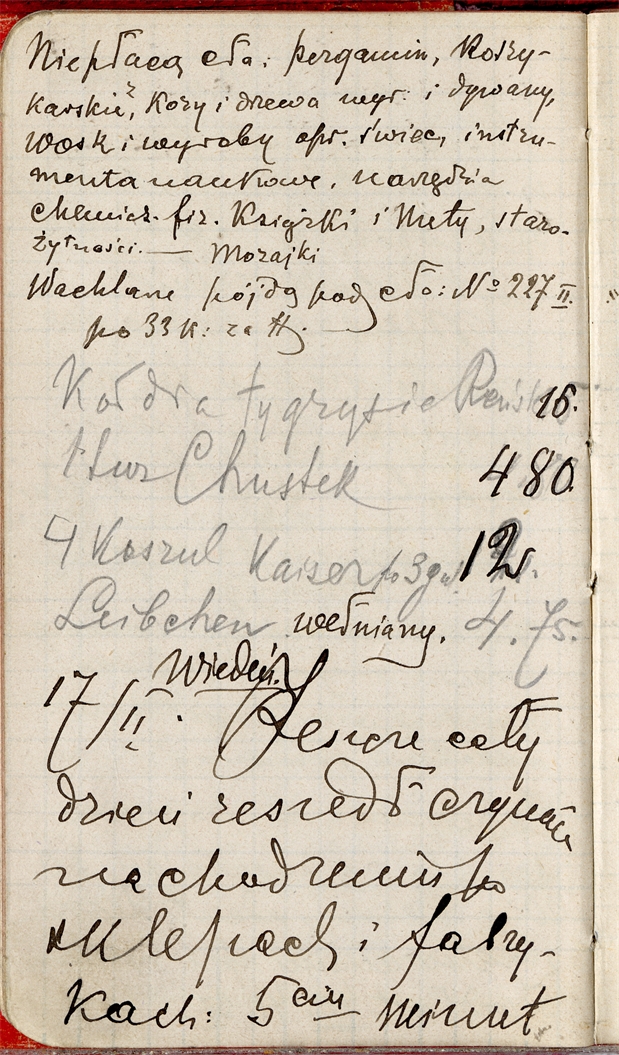 Niepłacą cła: pergamin, Koszy-
karskie, Kory i drzewa wyr. i dywany,
Wosk i wyroby opr. świec, instru-
menta naukowe, narzędzia
chemicz. fiz. Książki i Nuty, staro-
żytności. — Mozajki
Wachlarze pójdą pod cło: № 227 II.
po 33 k: za
Kołdra tygrysie 15.
Chustek 480
4 Koszul Kaiser po 3 12
Leibchen wełniany. 4.75.
Wiedeń.
17/II. cały
dzień zeszedł
na chodzeniu po
sklepach i fabry-
kach: 5 ciu minut